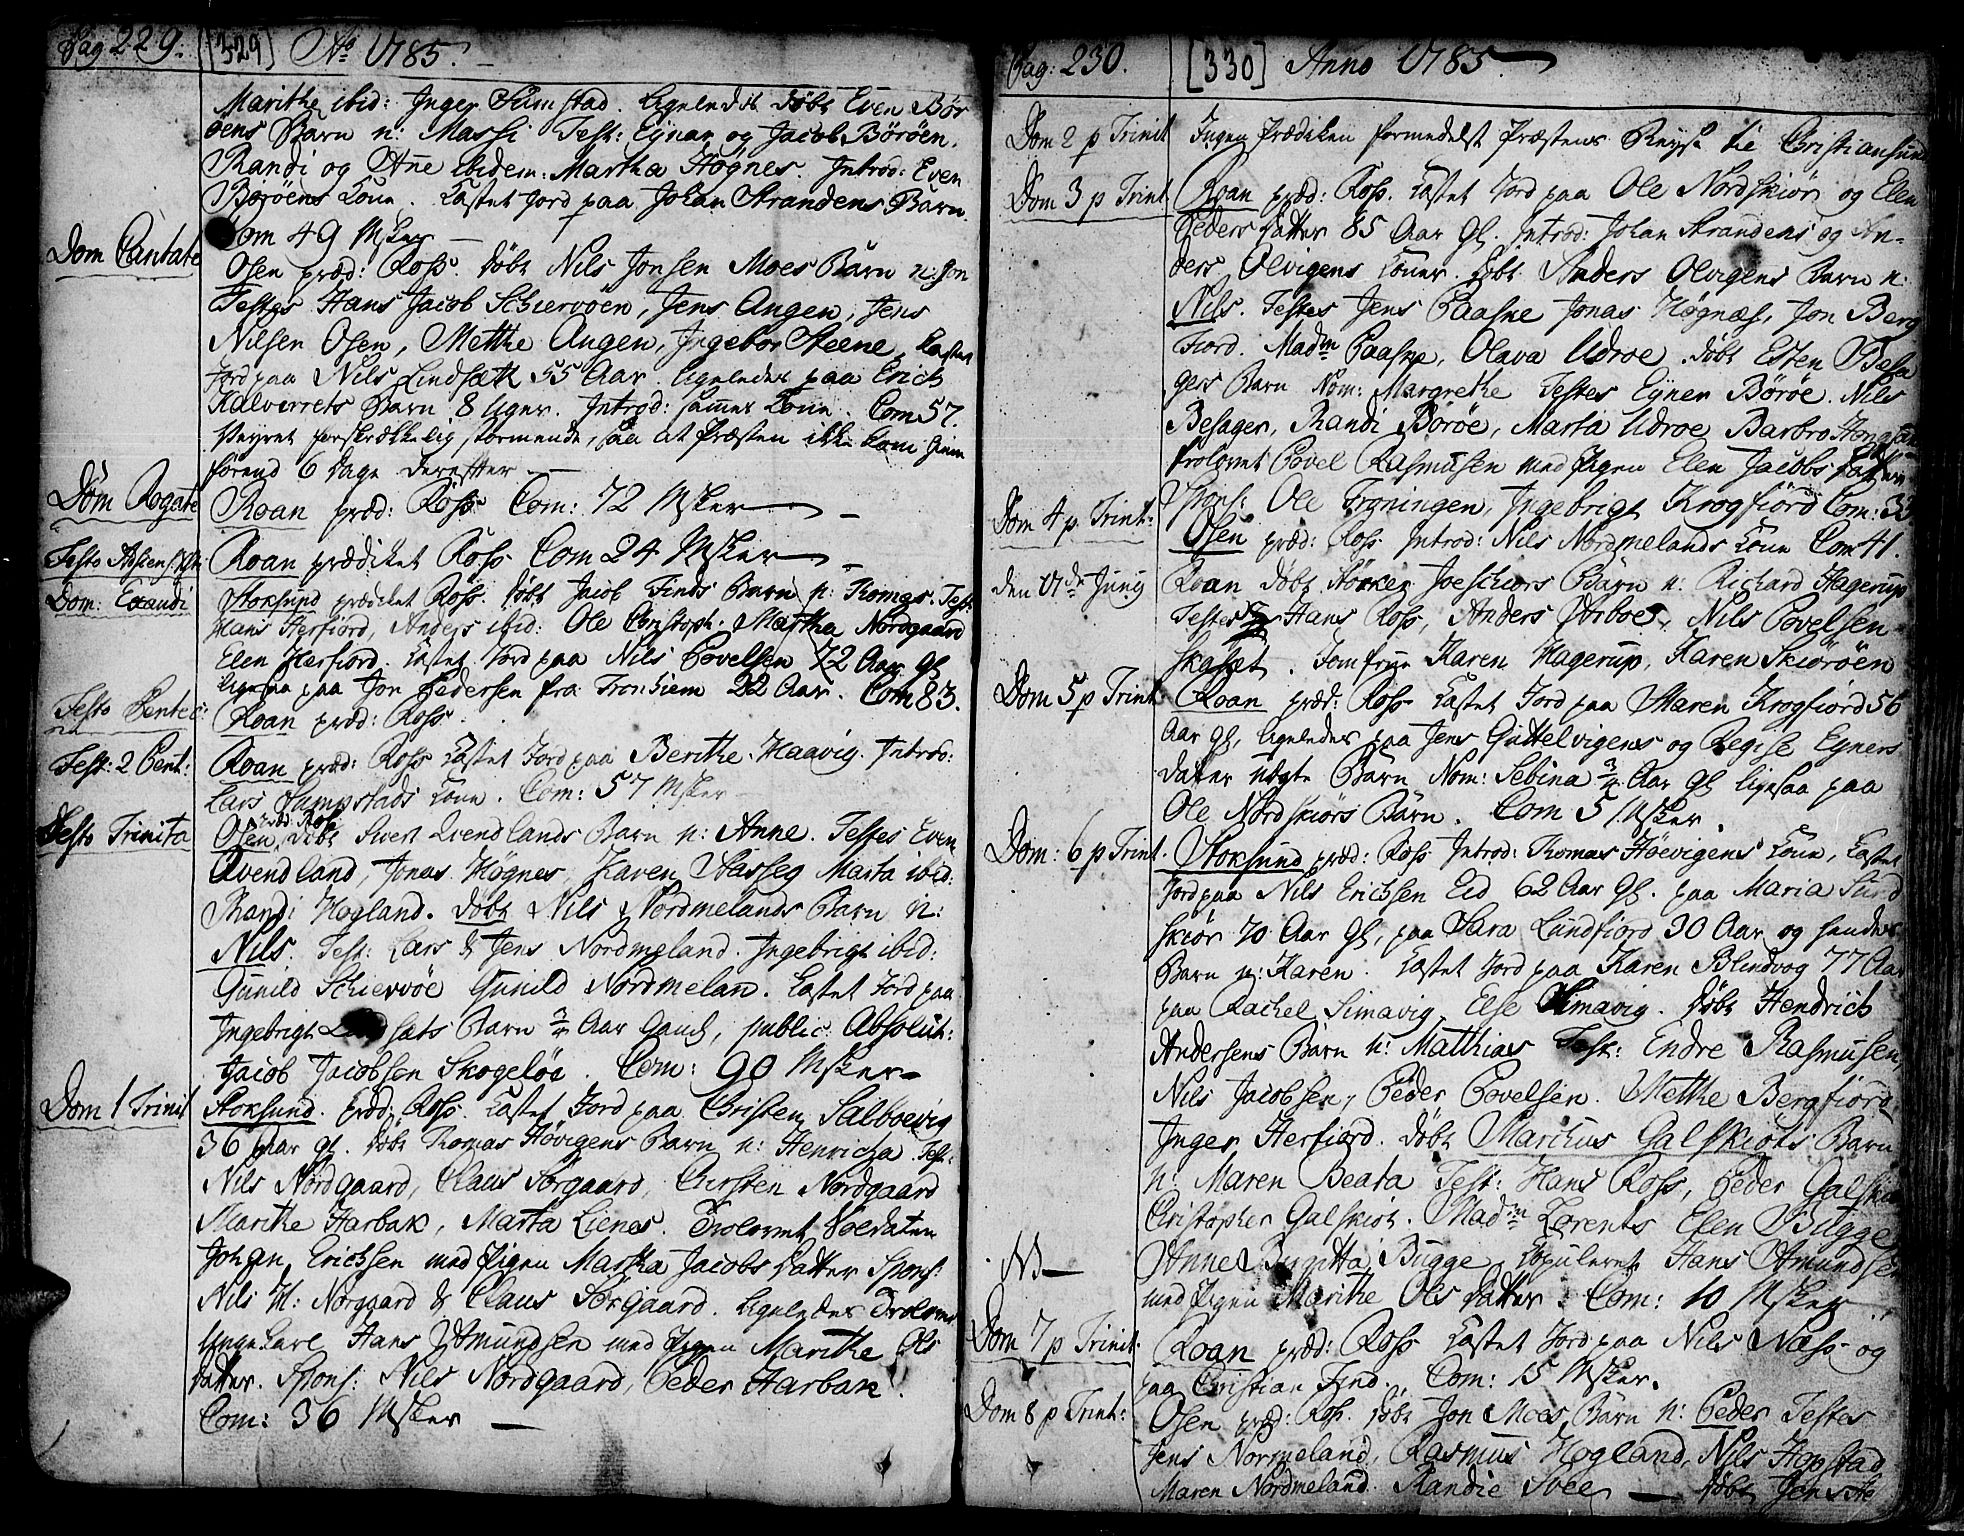 Pag 229. [329] Ao 1785.
Marithe ibid: Inger Sumstad. Ligeledes døbt Even Bør
øens Barn n: Massi Test: Eynar og Jacob Børøen,
Randi og Ane ibidem: Martha Høgnes. Introd: Even
Børøens Kone. Kastet Jord paa Johan Strandens Barn.
Com 49 Msker
Dom Cantate
Osen præd: Ross. døbt Nils Jonsen Moes Barn n: Jon
Testes Hans Jacob Schiervøen, Jens Angen, Jens
Nilsen Osen, Metthe Angen, Ingebor Steene, Kastet
Jord paa Nils Lindsætt 55 Aar. ligeledes paa Erich
Kalverrets Barn 8 Uger. Introd: sammes Kone. Com 57.
Veyret forskrækkelig stormende, saa at Præsten ikke kom hiem
førend 6 dage derefter
Dom Rogate
Roan præd: Ross Com: 72 Msker
Festo Ascens: Xsti
Roan prædiket Ross Com 24 Msker
Dom: Exaudi
Stoksund prædiket Ross. døbt Jacob Finds Barn n: Thomas. Test:
Hans Herfiord, Anders ibid: Ole Christoph. Martha Nordgaard
Elen Herfiord. Kastet Jord paa Nils Povelsen 72 Aar gl.
ligesaa paa Jon Pedersen fra Tronhiem 22 Aar. Com 83.
Festo Pentec:
Roan præd: Ross.
Fest: 2 Pent:
Roan præd: Ross Kastet Jord paa Berithe Haavig. Introd:
Lars Sumpstads Kone. Com: 57 Msker
Festo Trinita
præd: Ross
Osen, døbt Siver Qvendlands Barn n: Anne. Testes Even
Qvendland, Jonas Høgnes, Karen Stasseg Marta ibid:
Randi Hogland. døbt Nils Nordmelands Barn n:
Nils. Test: Lars & Jens Nordmeland. Ingebrigt ibid:
Gunild Schiervøe Gunild Nordmelan. Kastet Jord paa
Ingebrigt Barn 3/4 Aar, public: Absolut:
Jacob Jacobsen Skogeløe. Com: 90 Msker
Dom 1 Trinit
Stoksund. præd: Ross. Kastet Jord paa Christen Salboevig
36 Aar gl. døbt Thomas Høvigens Barn n: Henricha. Test:
Nils Nordgaard, Claus Sørgaard, Kirsten Nordgaard
Marithe Harbak, Marta Lienes. Trolovet Soldaten
Johan Erichsen med Pigen Martha Jacobs datter Spons:
Nils H: Norgaard & Claus Sørgaard. ligeledes Trolovet
Ungekarl Hans Amundsen med Pigen Marithe Ols
datter. Spons: Nils Nordgaard, Peder Harbak.
Com: 36 Msker
Pag: 230. [330] Anno 1785
Dom 2 p Trinit
Ingen Prædiken formedelst Præstens Reyse til Christiansund
Dom 3 p Trint
Roan præd: Ross. Kastet Jord paa Ole Nordskiør og Elen
Peders datter 85 Aar gl. Introd: Johan Strandens og An-
ders Olvigens Koner. døbt Anders Olvigens Barn n:
Nils. Testes Jens Paaske Jonas Høgnæs, Jon Berg
fiord. Madm Paaske, Olava Udroe. døbt Esten Besa
gers Barn Nom: Margrethe Testes Eyner Børøe. Nils
Besager, Randi Børøe, Marta Udroe Barbro
trolovet Povel Rasmusen med Pigen Elen Jacobs datter
Spons: Ole Froningen, Ingebrigt Krogfiord Com: 33
Dom 4 p. Trint:
Osen præd: Ross Introd: Nils Nordmelands Kone Com 41.
den 17de Juny
Roan døbt Størker Joeschiørs Barn n: Richard Hagerup
Testes Hans Ross, Anders Aarboe, Nils Povelsen
Skasæt. Jomfrue Karen Hagerup, Karen Skiørøen
Dom 5 p Trint
Roan præd: Ross Kastet Jord paa Maren Krogfiord 56
Aar gl, ligeledes paa Jens Guttelvigens og Regise Eyners
datter uægte Barn Nom: Sebina 3/4 Aar gl ligesaa paa
Ole Nordskiørs Barn. Com 51 Msker.
Dom: 6 p Trint.
Stoksund præd: Ross Introd: Thomas Høevigens Kone, Kastet
Jord paa Nils Erichsen Eid 62 Aar gl. paa Maria Sund
skiør 70 Aar gl, paa Sara Lundfiord 30 Aar og hendes
Barn n: Karen. Kastet Jord paa Karen Blindvog 77 Aar
paa Rachel Simavig, Else Simavig. døbt Hendrich
Andersens Barn n: Matthias Test: Endre Rasmusen,
Nils Jacobsen, Peder Povelsen. Metthe Bergfiord,
Inger Herfiord. døbt Marthus Galskiøts Barn
n: Maren Beata Test: Hans Ross, Peder Galskiøt
Christopher Galskiøt. Madm Lorents Elen Bugge
NB
Anne Birgitta Bugge Copuleret Hans Amundsen
med Pigen Marithe Ols datter. Com: 10 Msker
Dom 7 p Trinit.
Roan præd: Ross Kastet Jord paa Nils Næss og
paa Christian Find. Com: 15 Msker.
Dom 8 p Trint:
Osen præd: Ross. døbt Jon Moes Barn n: Peder Testes
Jens Normeland, Rasmus Hogland, Nils Hopstad
Maren Nordmeland. Randie Svee døbt Jens